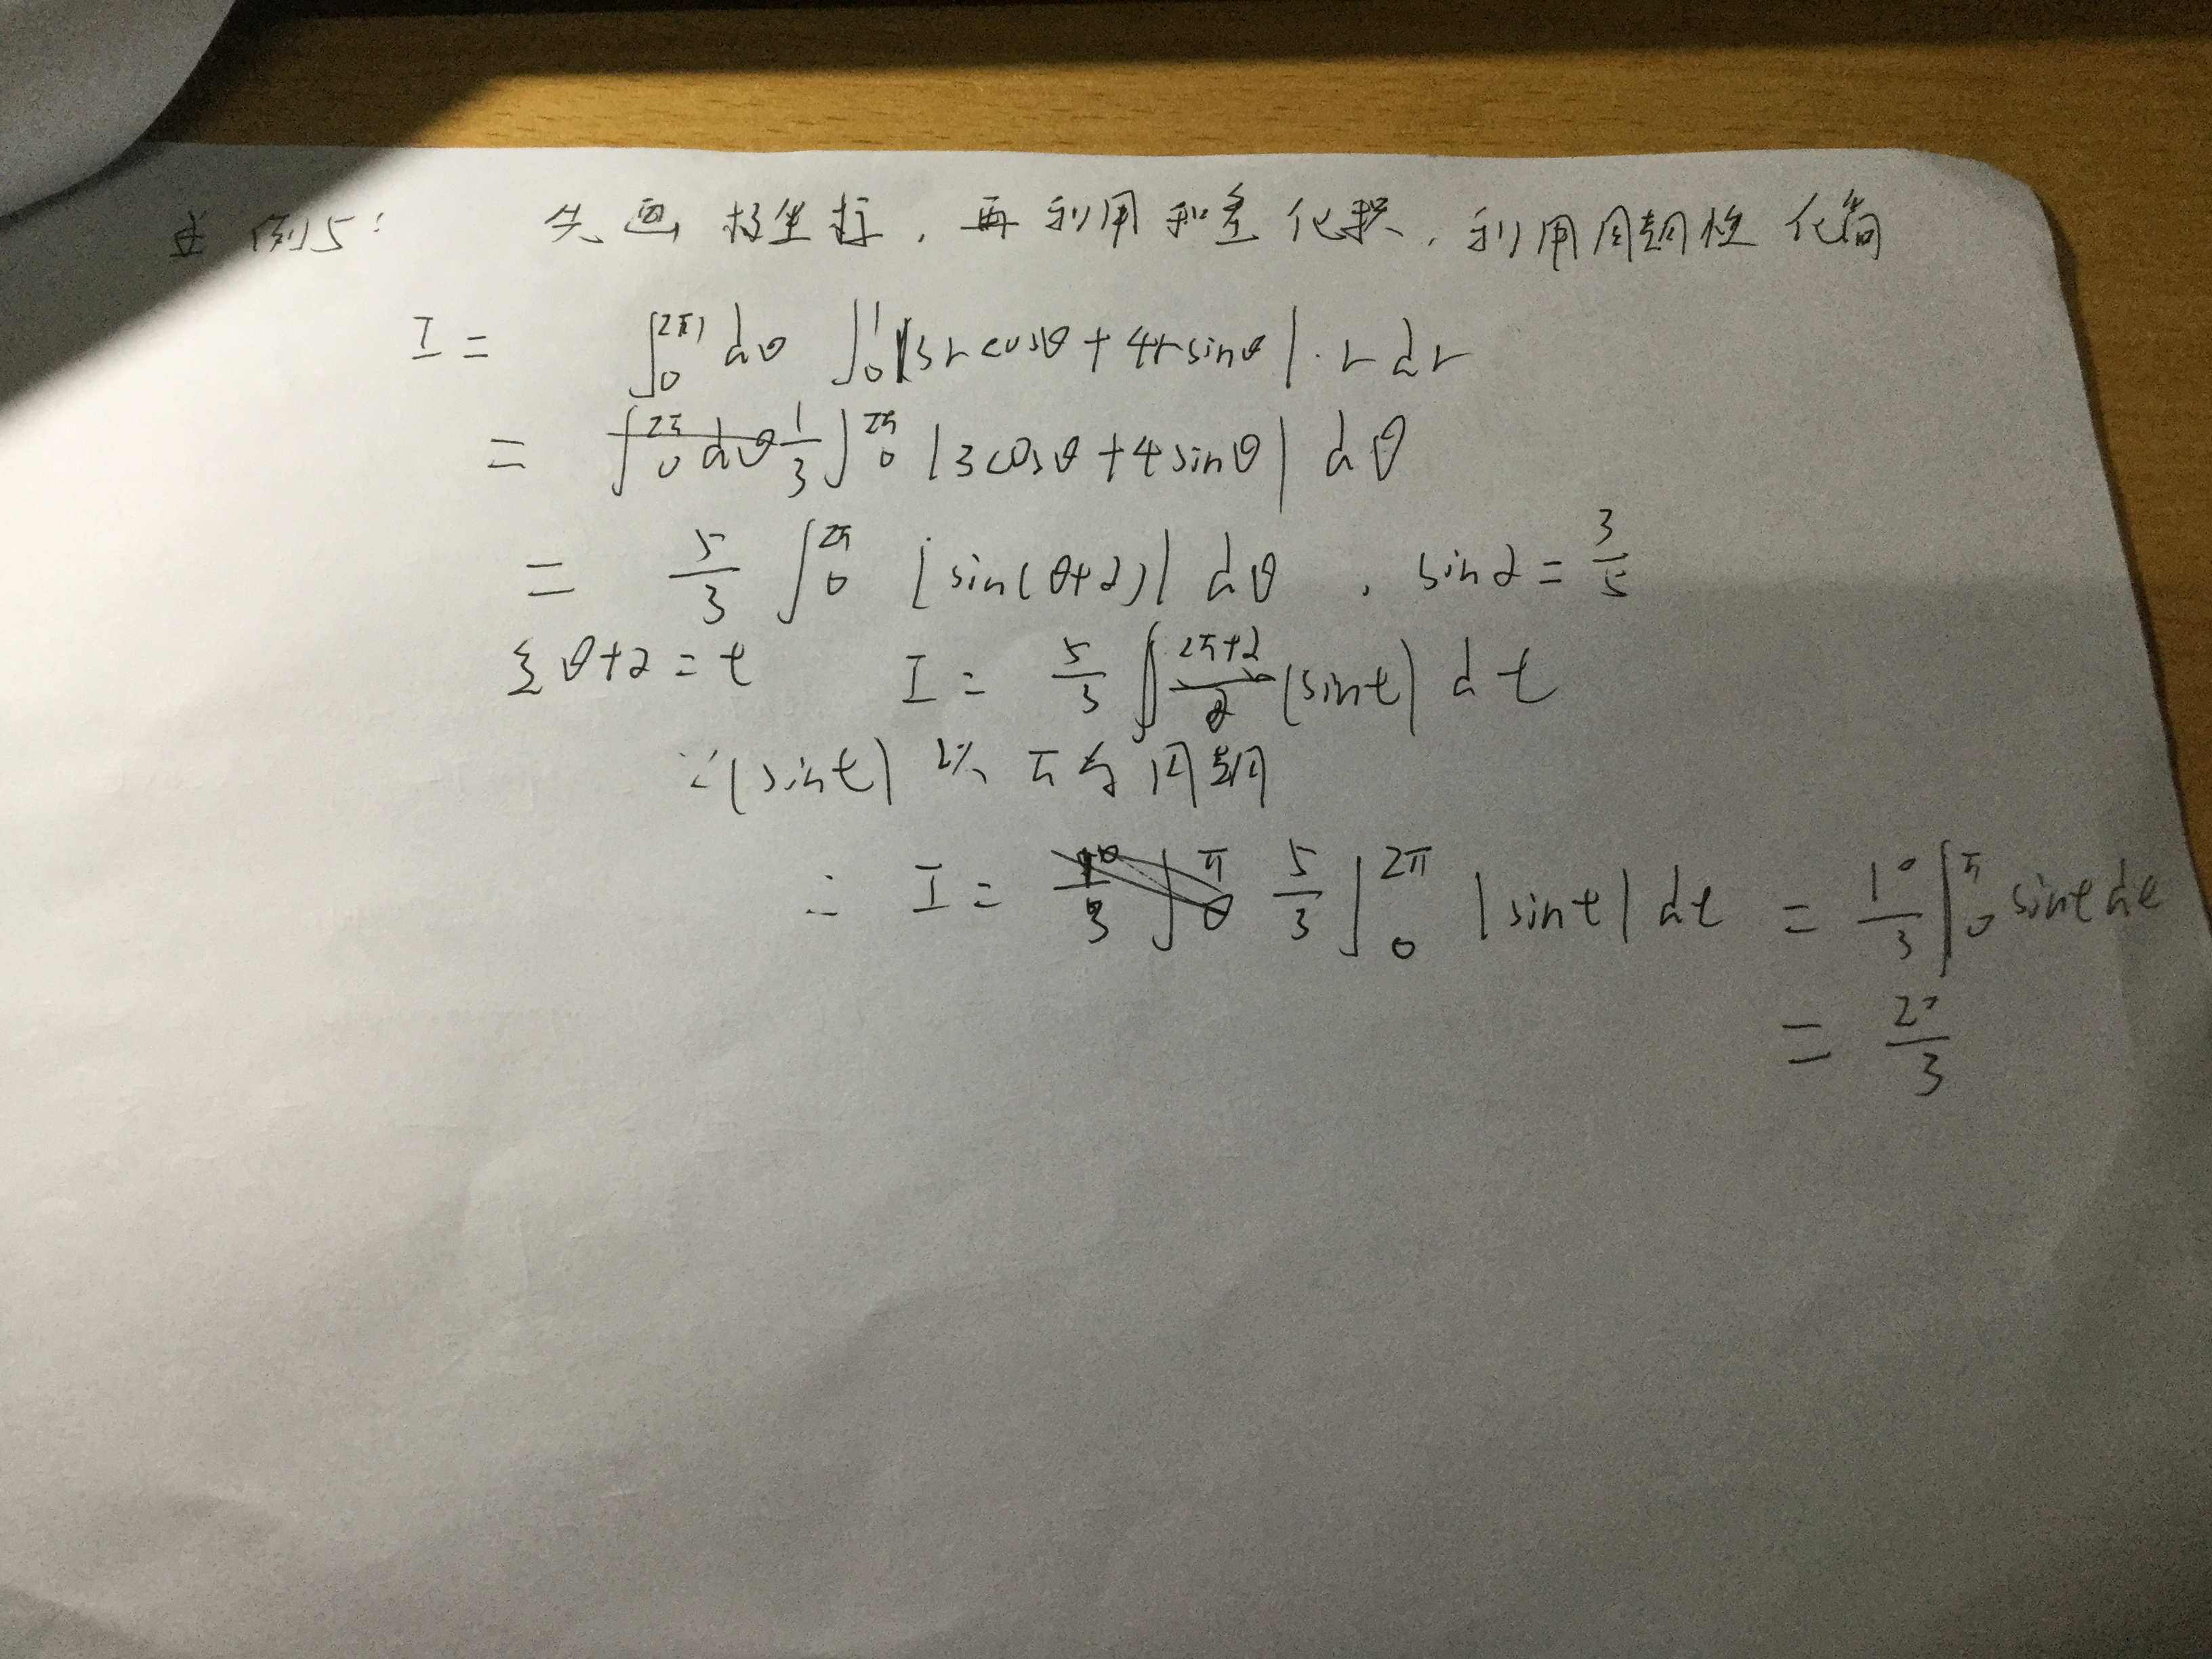 例5: 先画极坐标，再利用和差化积，利用周期性化简
I = ∫₀^{2π} dθ ∫₀^1 |3r cosθ + 4r sinθ| · r dr
= 1/3 ∫₀^{2π} |3cosθ + 4sinθ| dθ
= 5/3 ∫₀^{2π} |sin(θ+α)| dθ , sinα = 3/5
令 θ+α = t I = 5/3 ∫_α^{2π+α} |sint| dt
∵ |sint| 以 π 为周期
∴ I = 5/3 ∫₀^{2π} |sint| dt = 10/3 ∫₀^π sint dt
= 20/3